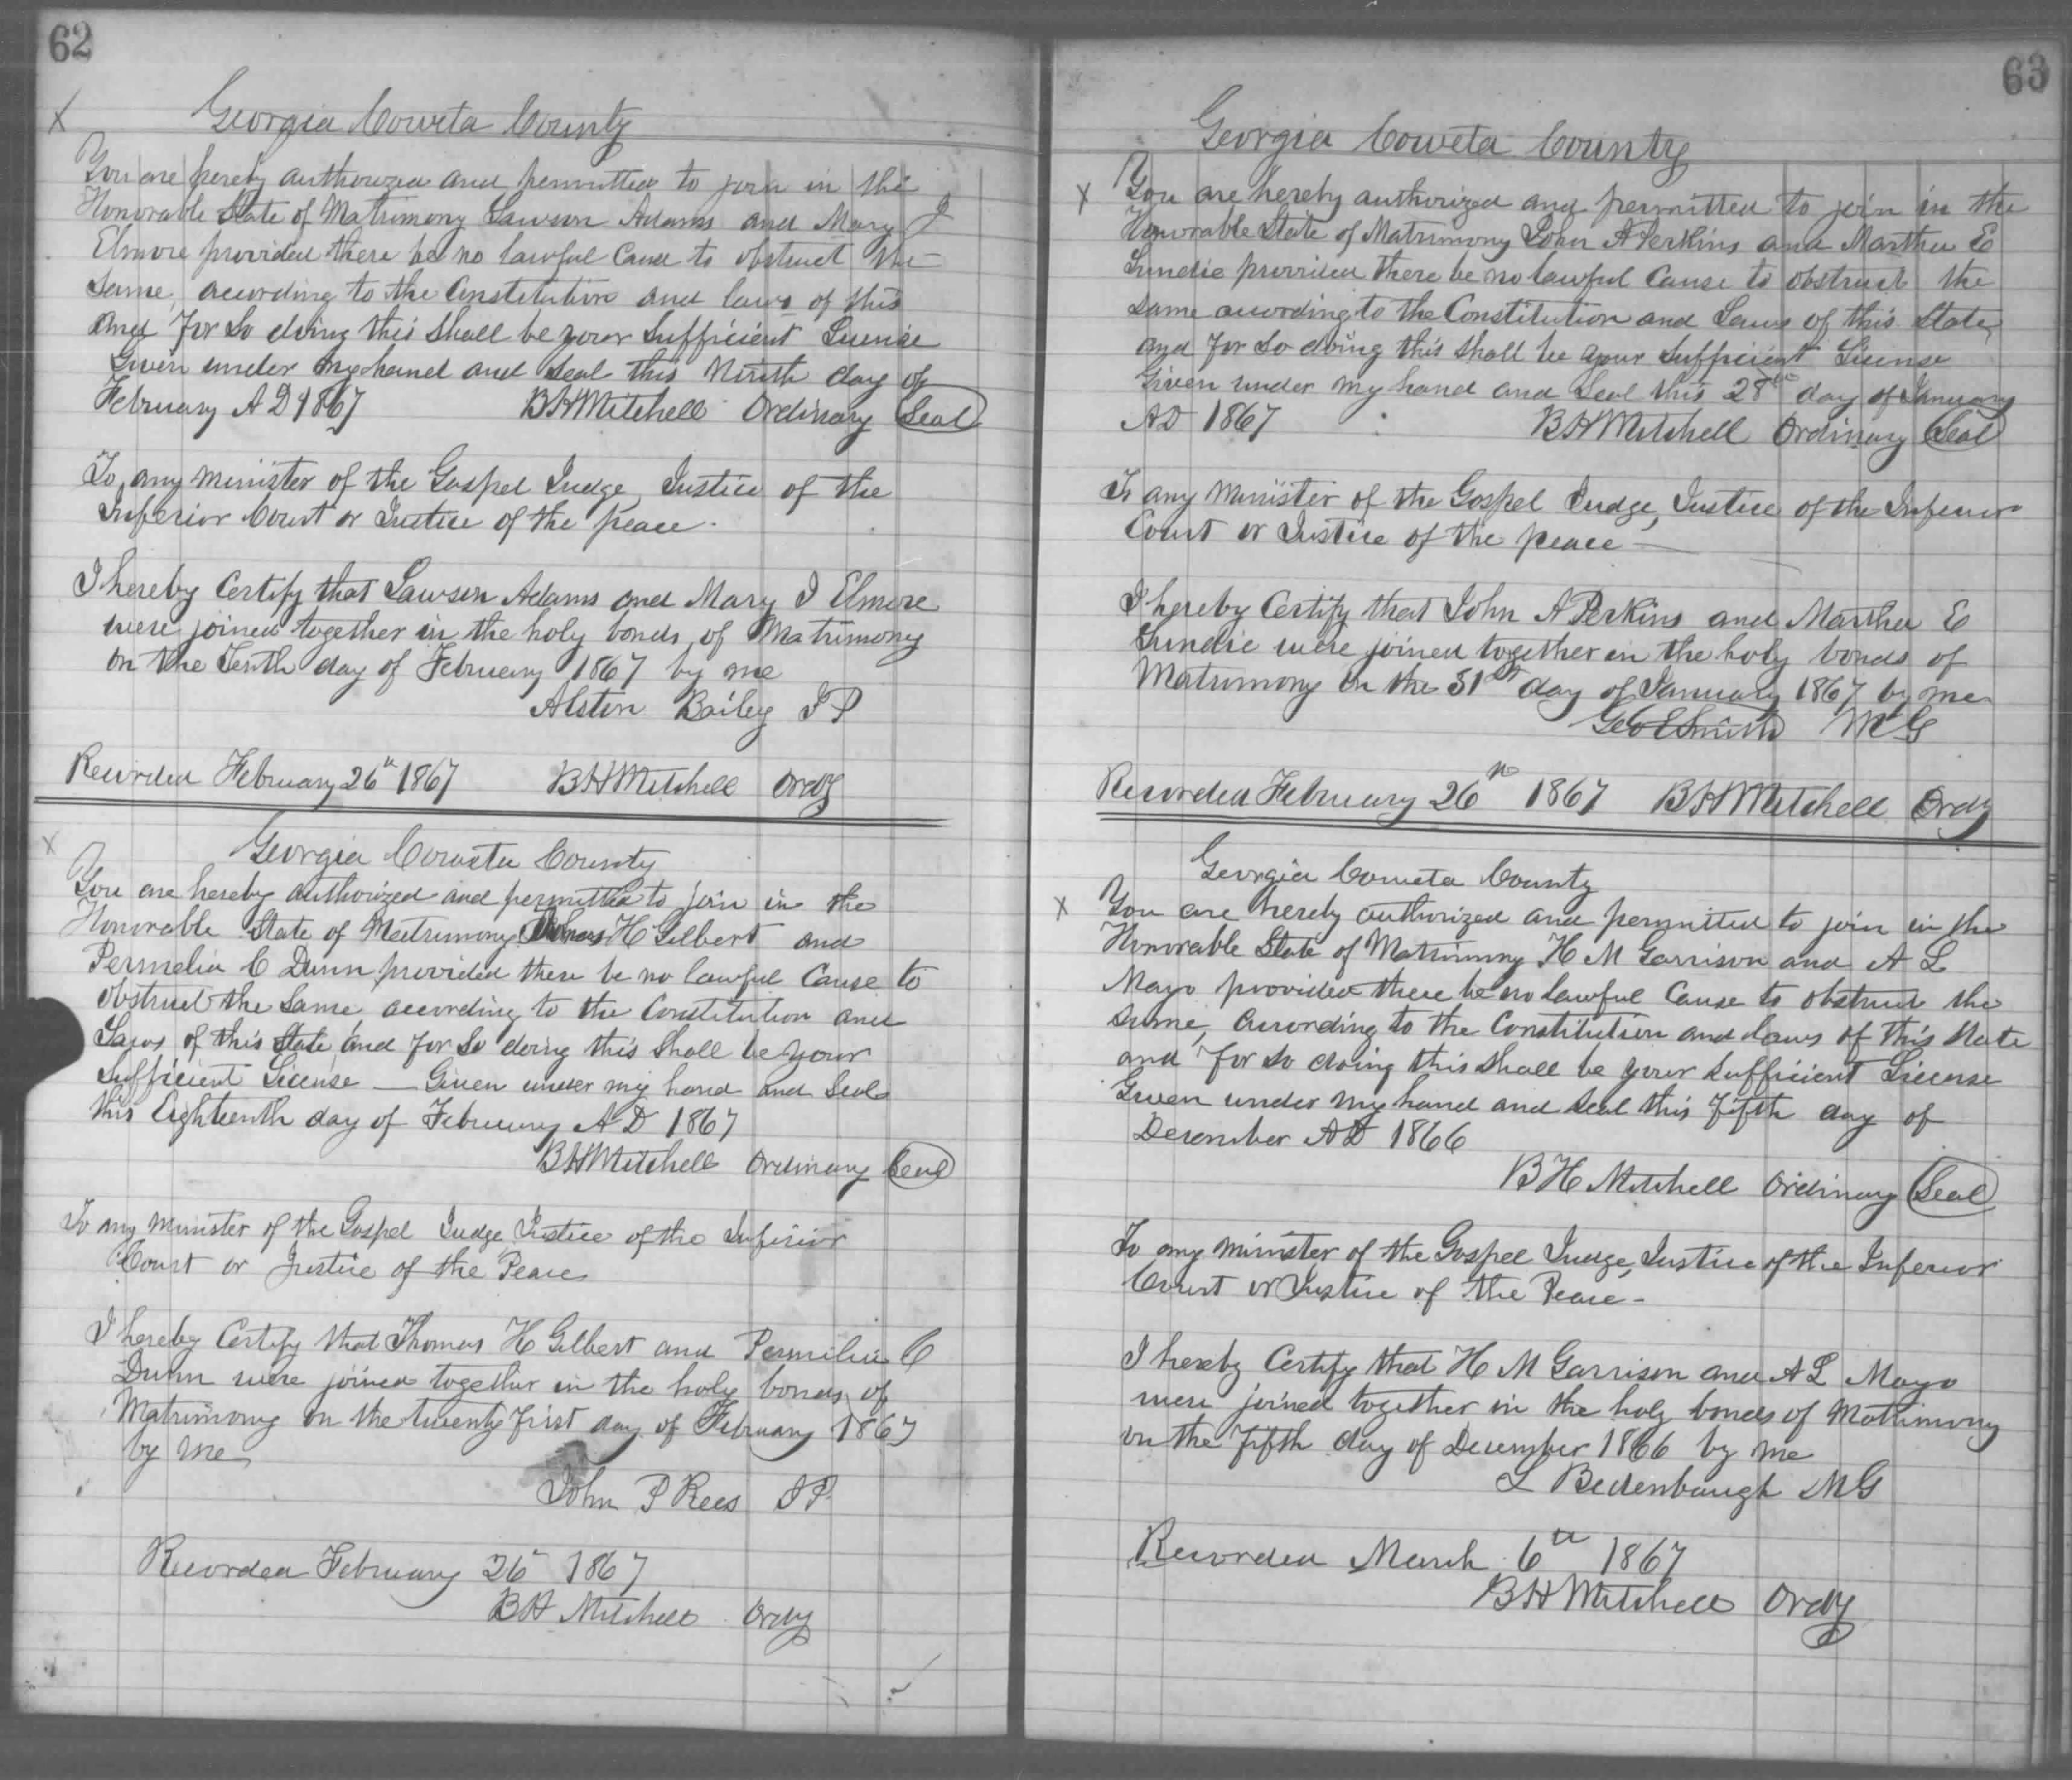 62
Georgia Coweta County
X
You are hereby authorized and permitted to join in the
Honorable State of Matrimony Lawson Adams and Mary J
Elmore provided there be no lawful Cause to obstruct the
Same, according to the Constitution and laws of this
and for So doing this Shall be your Sufficient License
Given under my hand and Seal this Ninth day of
February A D 1867 B H Mitchell Ordinary Seal
To any minister of the Gospel Judge, Justice of the
Inferior Court or Justice of the peace.
I hereby Certify that Lawson Adams and Mary J Elmore
were joined together in the holy bonds of Matrimony
on the Tenth day of February 1867 by me
Alston Bailey J P
Recorded February 26th 1867 B H Mitchell Ordy
X
Georgia Coweta County
You are hereby authorized and permitted to join in the
Honorable State of Matrimony Thomas H Gilbert and
Permelia C Dunn provided there be no lawful Cause to
obstruct the Same, according to the Constitution and
Laws of this State, and for So doing this Shall be your
Sufficient License — Given under my hand and Seal
this Eighteenth day of February A D 1867
B H Mitchell Ordinary Seal
To any minister of the Gospel Judge Justice of the Inferior
Court or Justice of the Peace
I hereby Certify that Thomas H Gilbert and Permelia C
Dunn were joined together in the holy bonds of
Matrimony on the twenty first day of February 1867
by me
John P Rees J P.
Recorded February 26th 1867
B H Mitchell Ordy
63
Georgia Coweta County
X
You are hereby authorized and permitted to join in the
Honorable State of Matrimony John A Perkins and Martha E
Lundie provided there be no lawful Cause to obstruct the
same according to the Constitution and Laws of this State,
and for So doing this Shall be your Sufficient License
Given under my hand and Seal this 28th day of January
A D 1867 B H Mitchell Ordinary Seal
To any minister of the Gospel Judge, Justice of the Inferior
Court or Justice of the peace —
I hereby Certify that John A Perkins and Martha E
Lundie were joined together in the holy bonds of
Matrimony on the 31st day of January 1867 by me
Geo E Smith M G
Recorded February 26th 1867 B H Mitchell Ordy
Georgia Coweta County
X
You are hereby authorized and permitted to join in the
Honorable State of Matrimony H M Garrison and A L
Mayo provided there be no lawful Cause to obstruct the
Same, according to the Constitution and laws of this State
and for So doing this shall be your Sufficient License
Given under my hand and Seal this fifth day of
December A D 1866
B H Mitchell Ordinary Seal
To any minister of the Gospel Judge, Justice of the Inferior
Court or Justice of the Peace -
I hereby Certify that H M Garrison and A L Mayo
were joined together in the holy bonds of Matrimony
on the fifth day of December 1866 by me
L Bedenbaugh M G
Recorded March 6th 1867
B H Mitchell Ordy